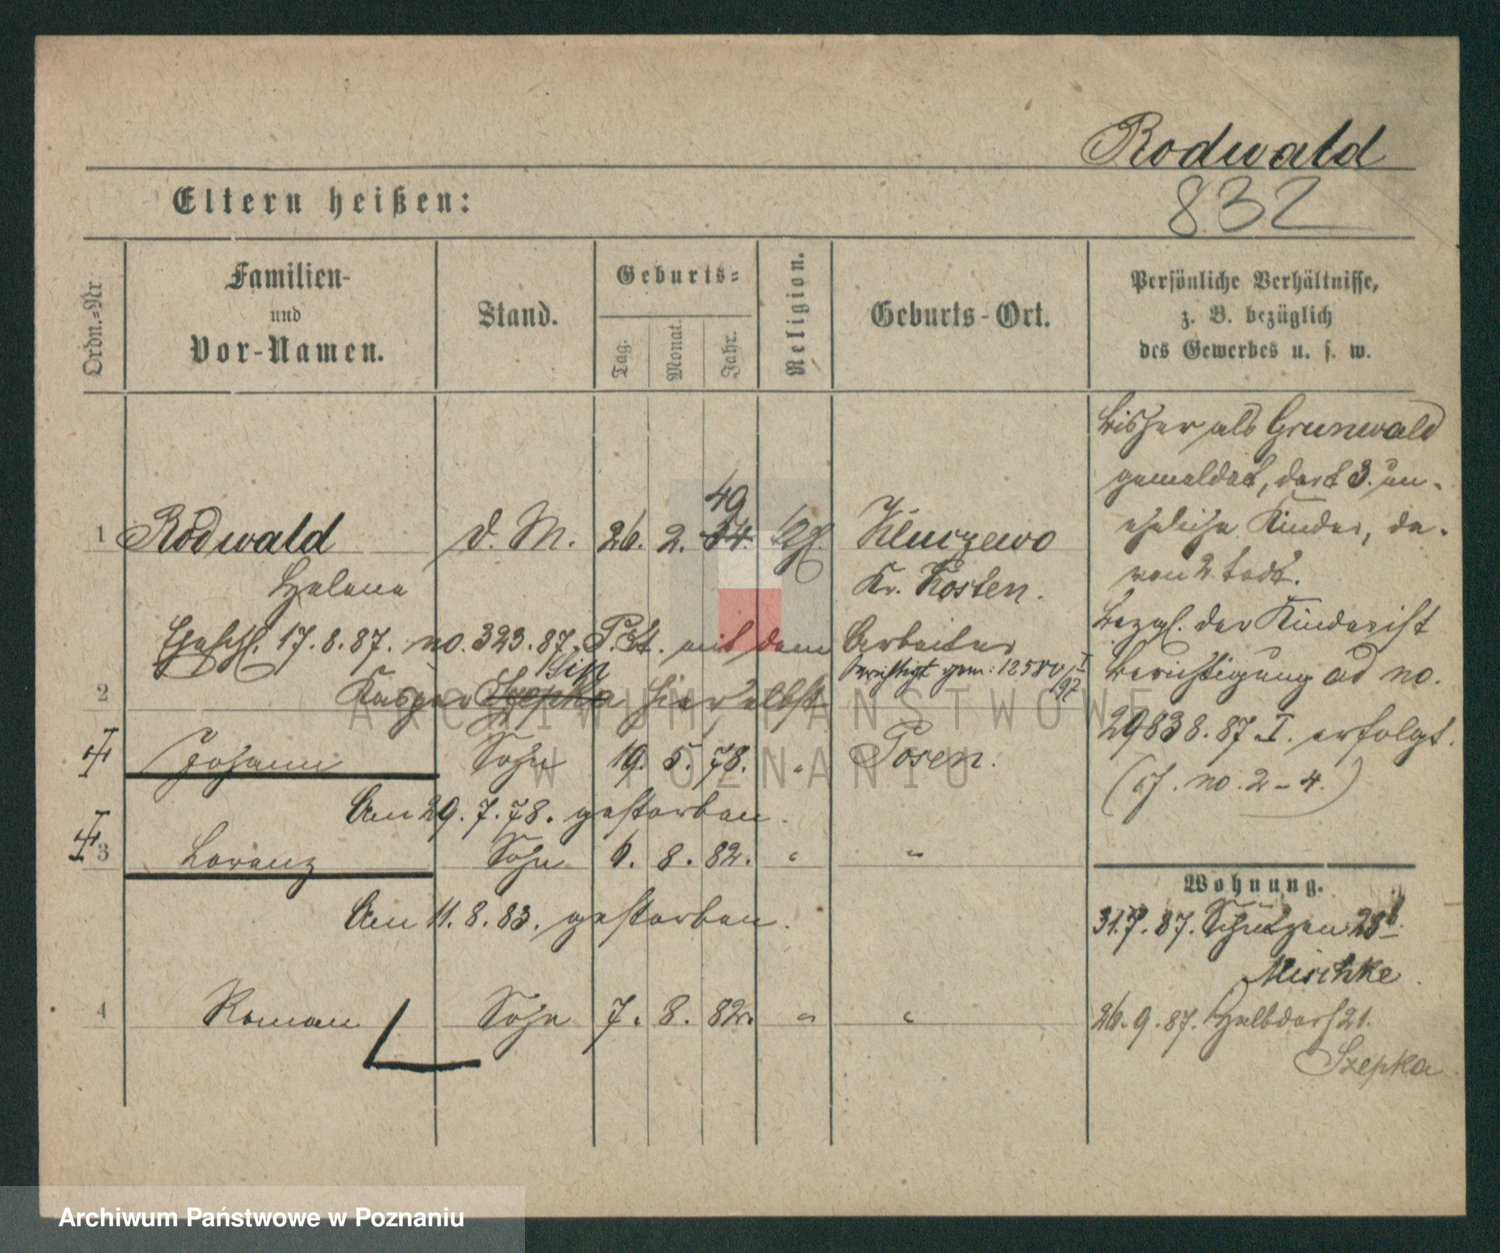 Rodwald
832
Eltern heißen:
Ordn.-Nr
Familien-
und
Vor-Namen.
Stand.
Geburts-
Tag.
Monat.
Jahr.
Religion.
Geburts-Ort.
Persönliche Verhältnisse,
z. B. bezüglich
des Gewerbes u. s. w.
bisher als Grunwald
gemeldet, dort 3 un-
eheliche Kinder, da-
von 2 todt.
49
1 Rodwald d. M. 26. 2. 54. kth. Kluczewo
Helene Kr. Kosten.
Bezgl. der Kinder ist
Gesch. 17.8.87. no. 323.87. P. St. mit dem Arbeiter
berichtigt gem: 12580/97 I
Berichtigung ad no.
2 Kaspar Szepka hierselbst
29838.87.I. erfolgt.
Johann Sohn 19. 5. 78. " Posen.
(cf. no. 2-4.)
Am 29.7.78. gestorben.
3 Lorenz Sohn 6. 8. 82. " "
Wohnung.
Am 11.8.83. gestorben.
31.7.87. Schützen 28b
Mischke
4 Roman Sohn 7. 8. 82. " "
26.9.87. Halbdorf 21.
Szepka
ARCHIWUM PAŃSTWOWE
W POZNANIU
Archiwum Państwowe w Poznaniu